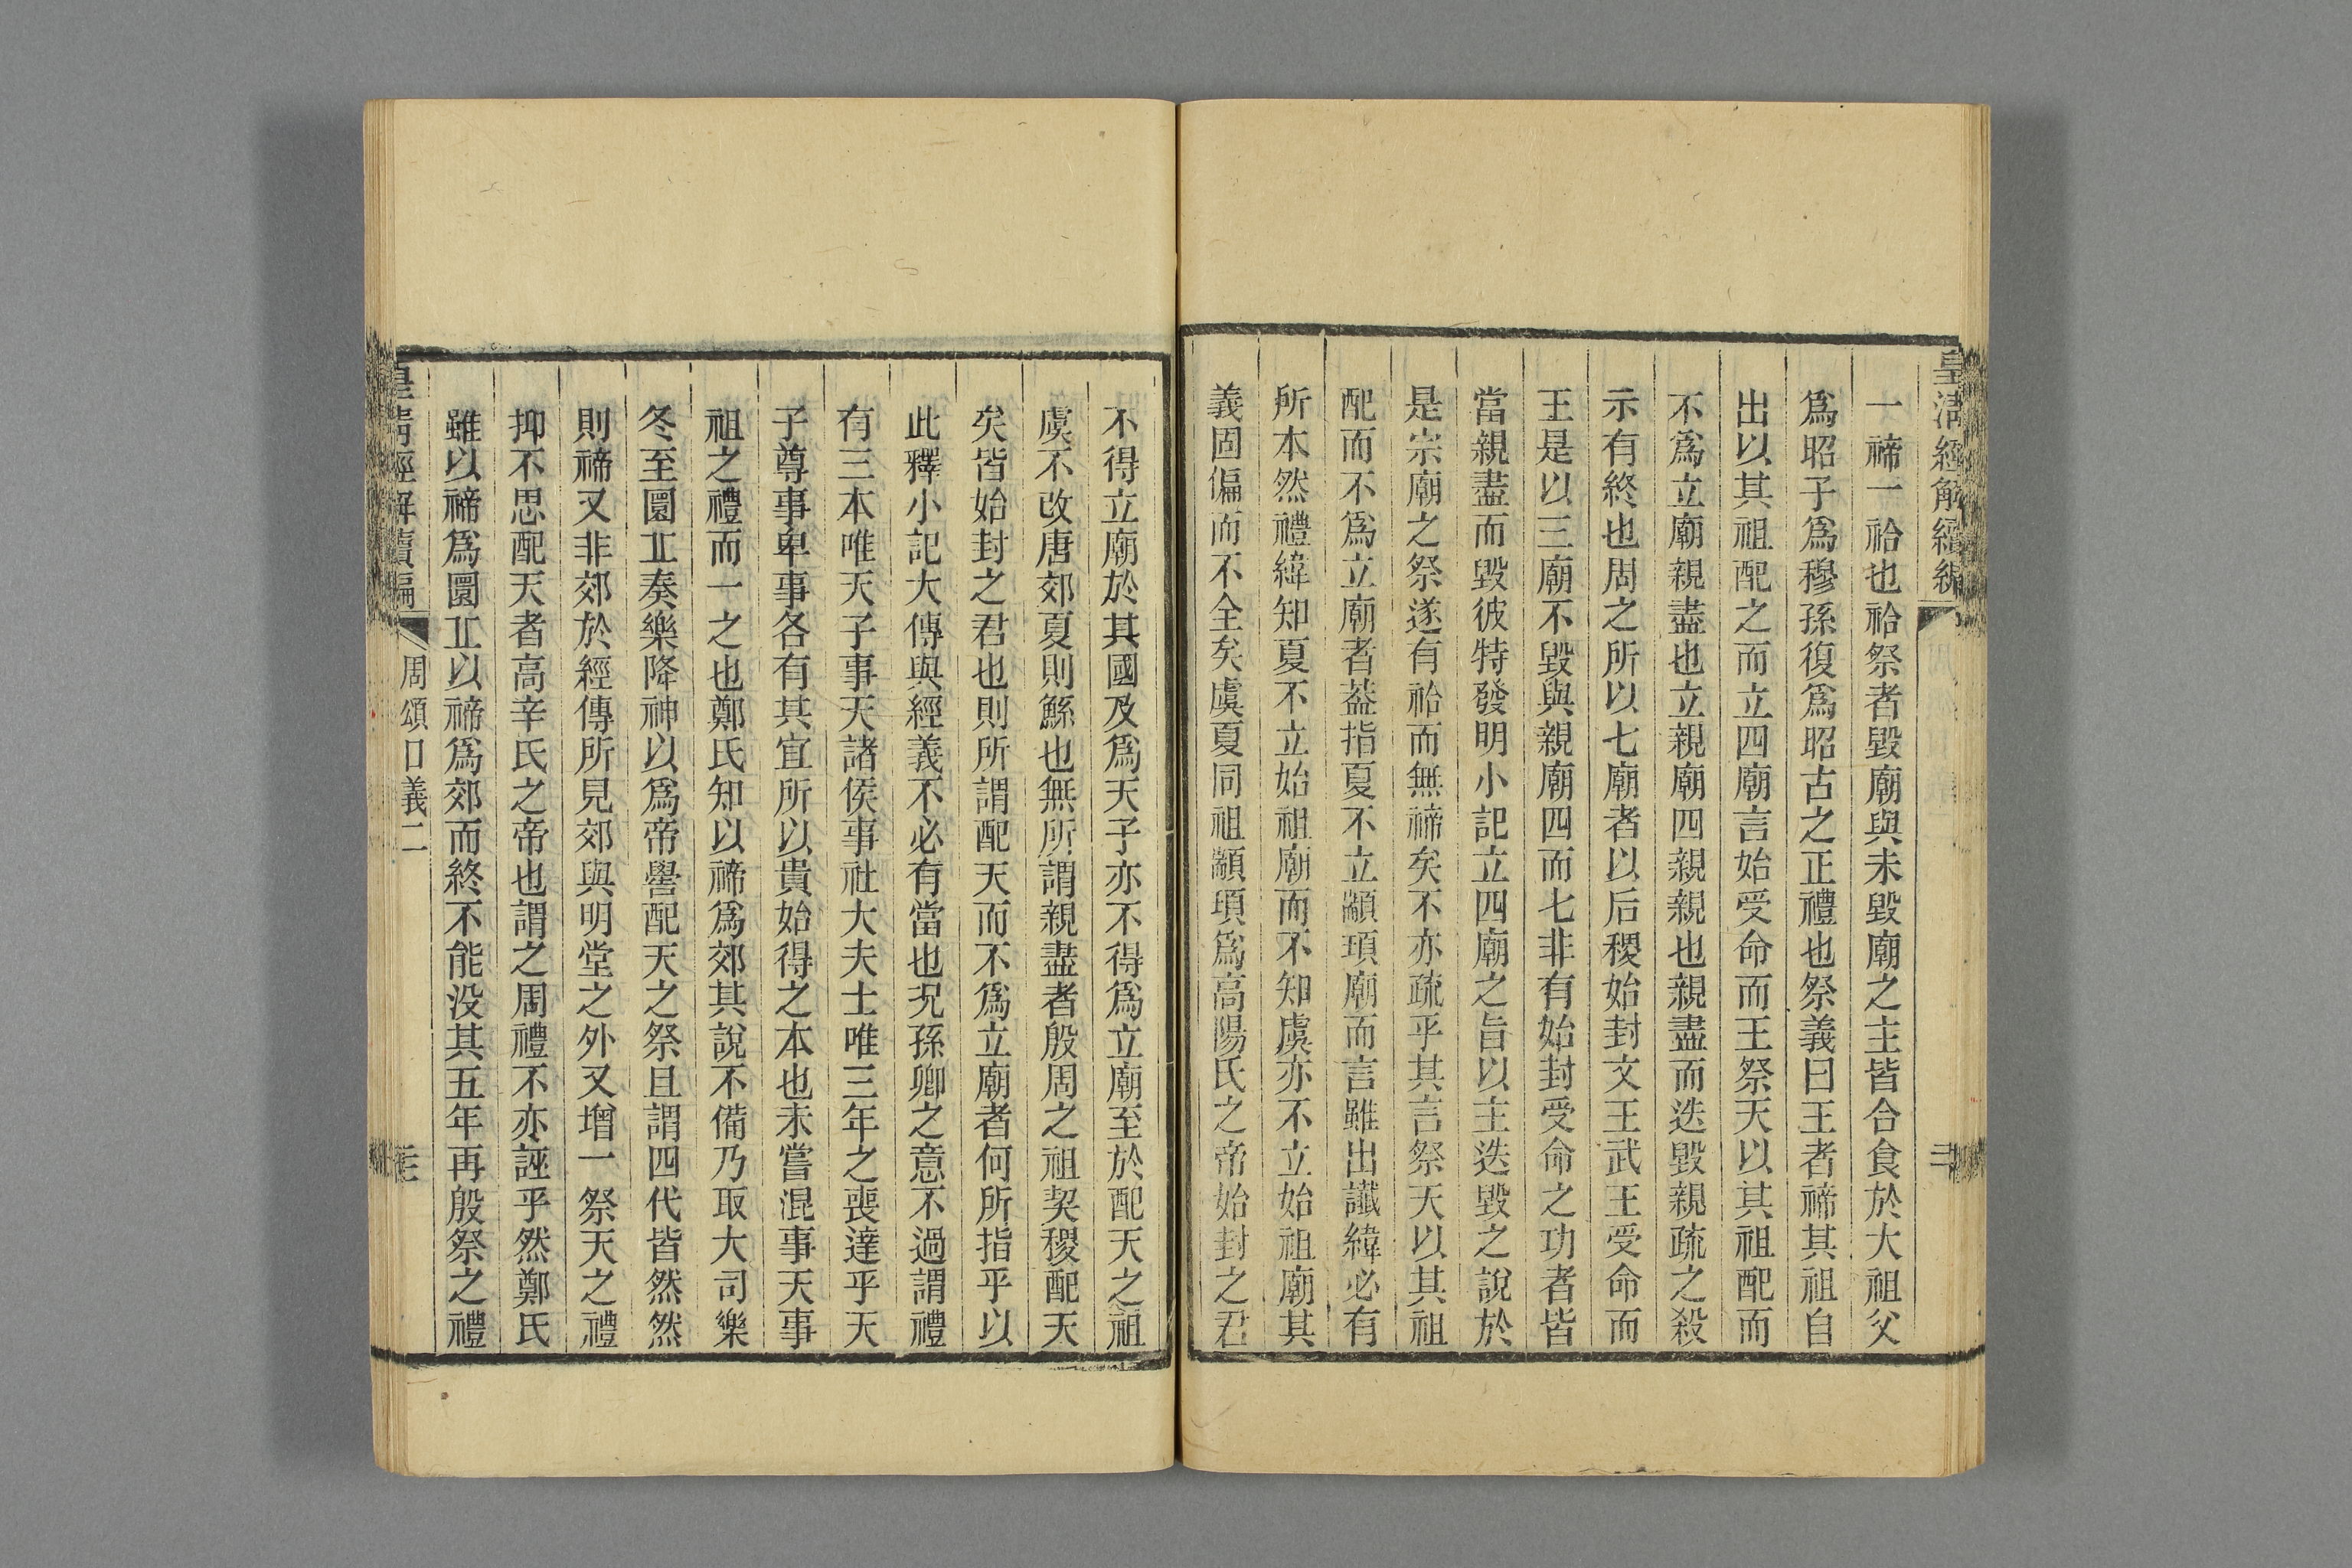 皇清經解續編
一禘一祫也祫祭者毀廟與未毀廟之主皆合食於大祖父
爲昭子爲穆孫復爲昭古之正禮也祭義曰王者禘其祖自
出以其祖配之而立四廟言始受命而王祭天以其祖配而
不爲立廟親盡也立親廟四親親也親盡而迭毀親疏之殺
示有終也周之所以七廟者以后稷始封文王武王受命而
王是以三廟不毀與親廟四而七非有始封受命之功者皆
當親盡而毀彼特發明小記立四廟之旨以主迭毀之說於
是宗廟之祭遂有祫而無禘矣不亦疏乎其言祭天以其祖
配而不爲立廟者葢指夏不立顓頊廟而言雖出讖緯必有
所本然禮緯知夏不立始祖廟而不知虞亦不立始祖廟其
義固偏而不全矣虞夏同祖顓頊爲高陽氏之帝始封之君
不得立廟於其國及爲天子亦不得爲立廟至於配天之祖
虞不改唐郊夏則鯀也無所謂親盡者殷周之祖契稷配天
矣皆始封之君也則所謂配天而不爲立廟者何所指乎以
此釋小記大傳與經義不必有當也況孫卿之意不過謂禮
有三本唯天子事天諸侯事社大夫士唯三年之喪達乎天
子尊事卑事各有其宜所以貴始得之本也未嘗混事天事
祖之禮而一之也鄭氏知以禘爲郊其說不備乃取大司樂
冬至圜丠奏樂降神以爲帝嚳配天之祭且謂四代皆然然
則禘又非郊於經傳所見郊與明堂之外又增一祭天之禮
抑不思配天者高辛氏之帝也謂之周禮不亦誣乎然鄭氏
雖以禘爲圜丠以禘爲郊而終不能没其五年再殷祭之禮
皇清經解續編
周頌口義二